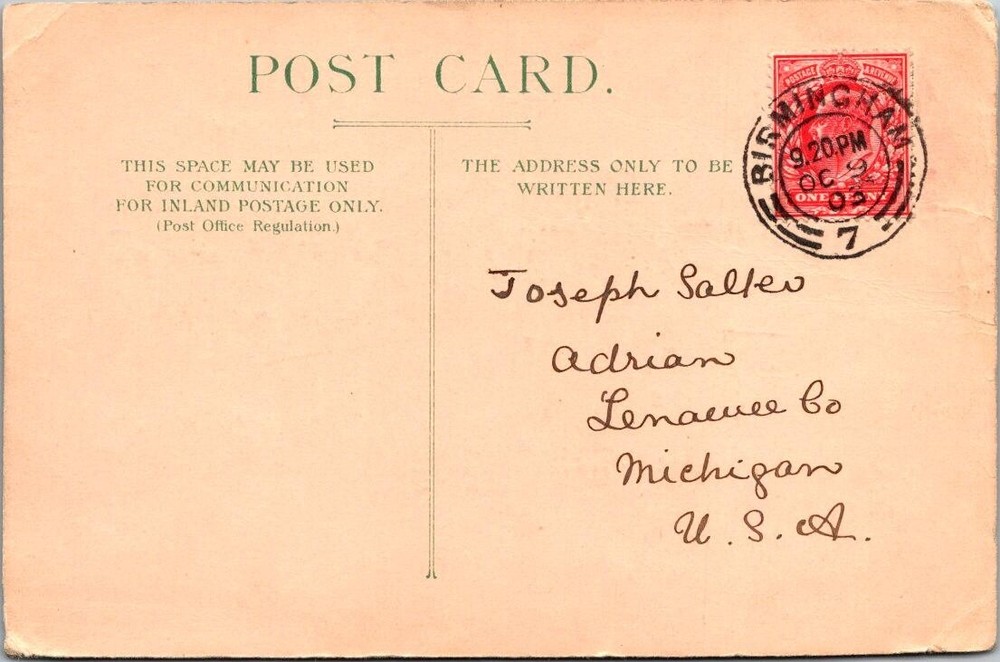 POST CARD.
THIS SPACE MAY BE USED
FOR COMMUNICATION
FOR INLAND POSTAGE ONLY.
(Post Office Regulation.)
THE ADDRESS ONLY TO BE
WRITTEN HERE.
POSTAGE & REVENUE
ONE PENNY
BIRMINGHAM
9.20 PM
OC 9
03
7
Joseph Salter
Adrian
Lenawee Co
Michigan
U. S. A.